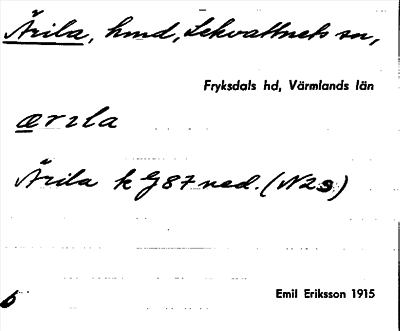 Ärila, hmd, Lekvattnets sn,
Fryksdals hd, Värmlands län
ærıla
Ärila k G 87 ned. (N2s)
Emil Eriksson 1915
6